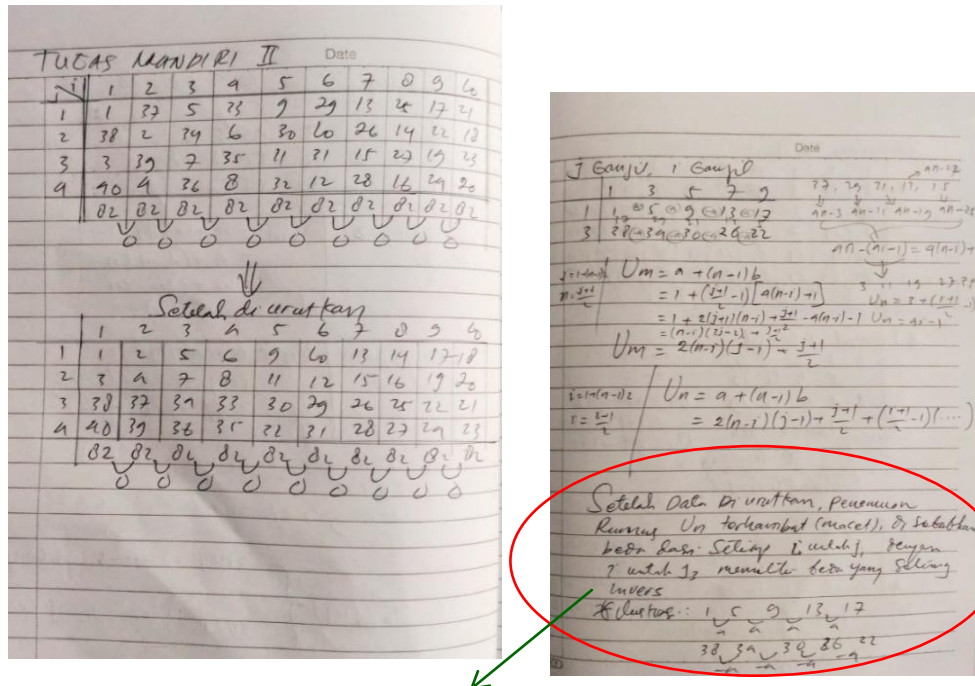 TUGAS MANDIRI II Date
j i 1 2 3 4 5 6 7 8 9 10
1 1 37 5 33 9 29 13 25 17 21
2 38 2 34 6 30 10 26 14 22 18
3 3 39 7 35 11 31 15 27 19 23
4 40 4 36 8 32 12 28 16 24 20
82 82 82 82 82 82 82 82 82 82
0 0 0 0 0 0 0 0 0
Setelah diurutkan
1 2 3 4 5 6 7 8 9 10
1 1 2 5 6 9 10 13 14 17 18
2 3 4 7 8 11 12 15 16 19 20
3 38 37 34 33 30 29 26 25 22 21
4 40 39 36 35 32 31 28 27 24 23
82 82 82 82 82 82 82 82 82 82
0 0 0 0 0 0 0 0 0
Date
J Ganjil, i Ganjil
1 3 5 7 9
1 1 5 9 13 17
3 38 34 30 26 22
Um = a + (n-1)b
= 1 + (j+1/2 -1)[4(n-1)+1]
Um = 2(n-1)(j-1) - j+1/2
Un = a + (n-1)b
= 2(n-1)(j-1) + j+1/2 + (i+1/2 -1)(....)
Setelah Data Diurutkan, penemuan
Rumus Un terhambat (macet), disebabkan
beda dari setiap i untuk j, dengan
i untuk j3 memiliki beda yang saling
invers
Ilustrasi: 1 5 9 13 17
4 4 4 4
38 34 30 26 22
-4 -4 -4 -4